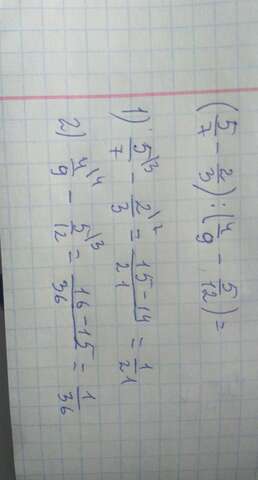 (5/7 - 2/3) : (4/9 - 5/12) =
1) 5\3/7 - 2\2/3 = 15-14/21 = 1/21
2) 4\4/9 - 5\3/12 = 16-15/36 = 1/36